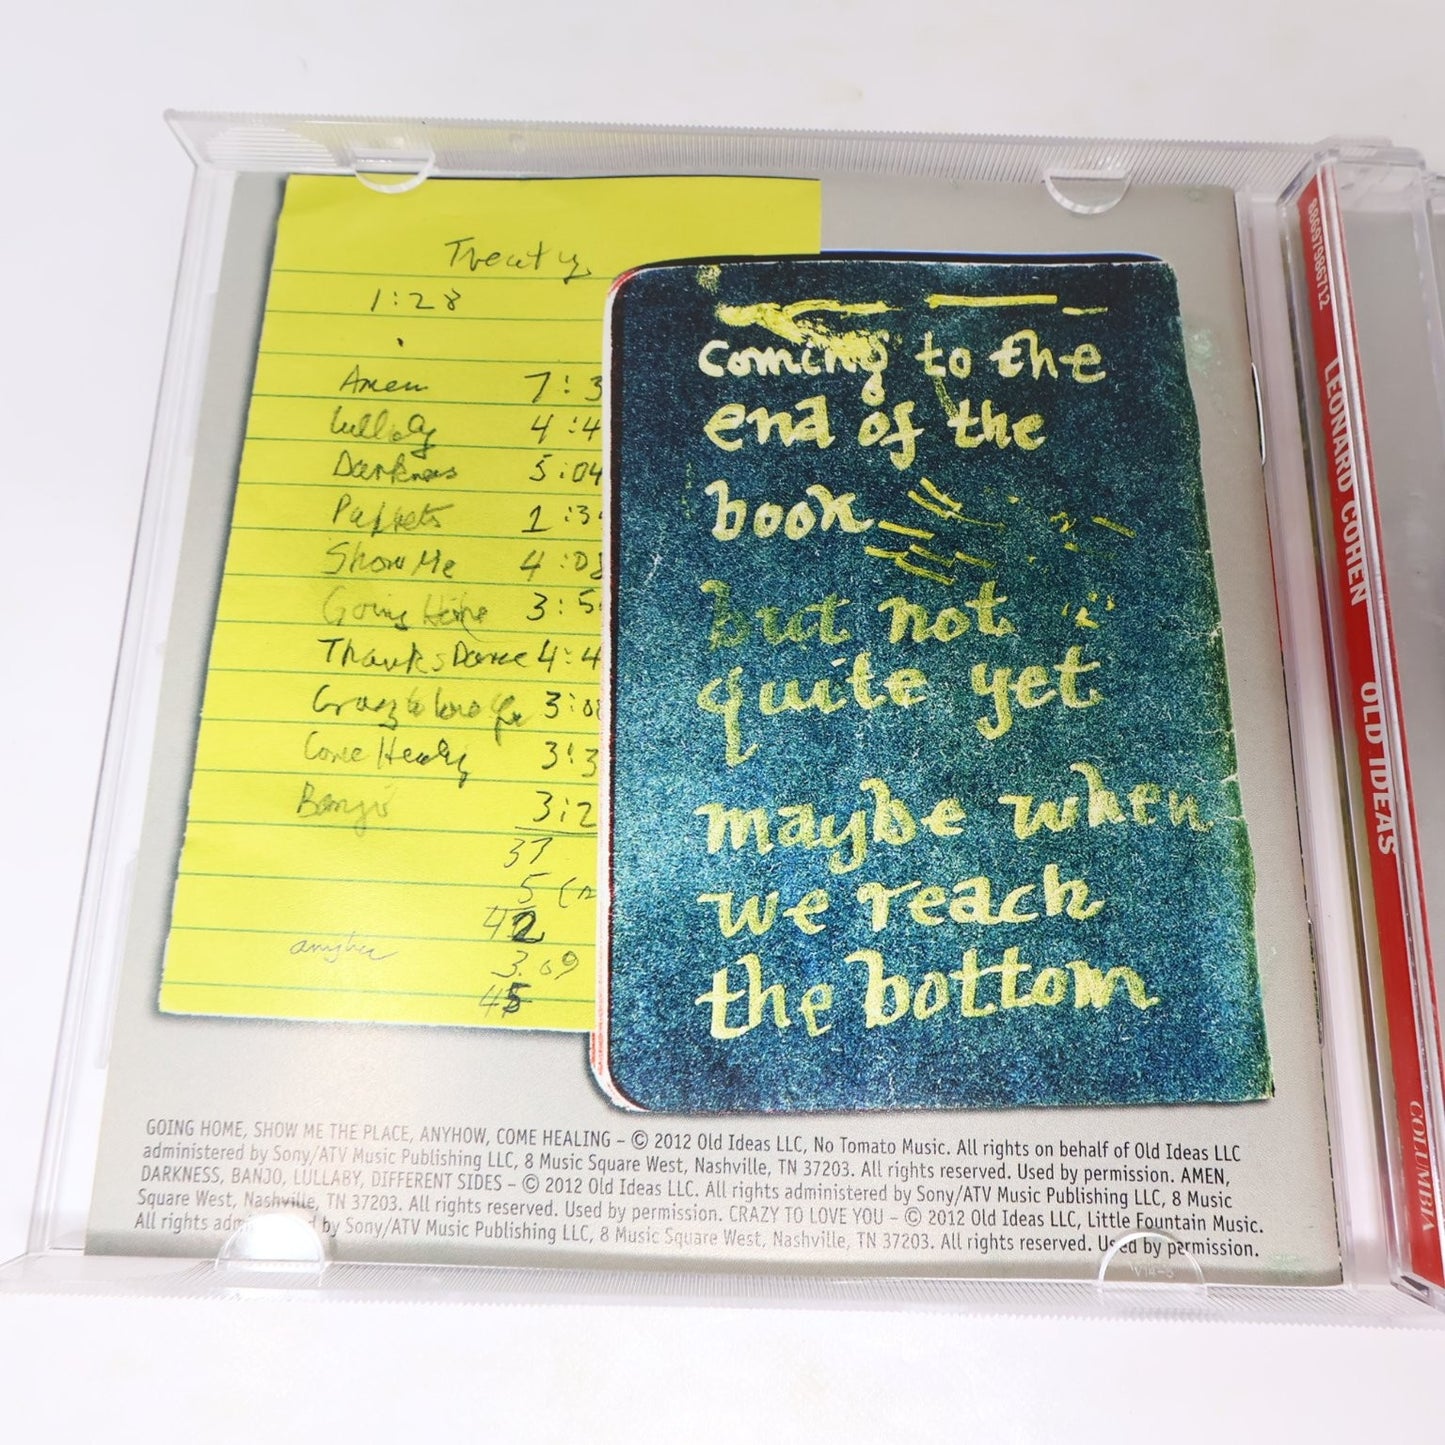 Treaty
1:28
Amen 7:3
Lullaby 4:4
Darkness 5:04
Puppets 1:3
Show Me 4:08
Going Home 3:5
Thanks Dance 4:4
Crazy to love you 3:08
Come Healing 3:3
Banjo 3:2
37
5
42
anyhow
3.09
45
coming to the
end of the
book
but not
quite yet
maybe when
we reach
the bottom
GOING HOME, SHOW ME THE PLACE, ANYHOW, COME HEALING – © 2012 Old Ideas LLC, No Tomato Music. All rights on behalf of Old Ideas LLC
administered by Sony/ATV Music Publishing LLC, 8 Music Square West, Nashville, TN 37203. All rights reserved. Used by permission. AMEN,
DARKNESS, BANJO, LULLABY, DIFFERENT SIDES – © 2012 Old Ideas LLC. All rights administered by Sony/ATV Music Publishing LLC, 8 Music
Square West, Nashville, TN 37203. All rights reserved. Used by permission. CRAZY TO LOVE YOU – © 2012 Old Ideas LLC, Little Fountain Music.
All rights by Sony/ATV Music Publishing LLC, 8 Music Square West, Nashville, TN 37203. All rights reserved. Used by permission.
88697986712 LEONARD COHEN OLD IDEAS COLUMBIA